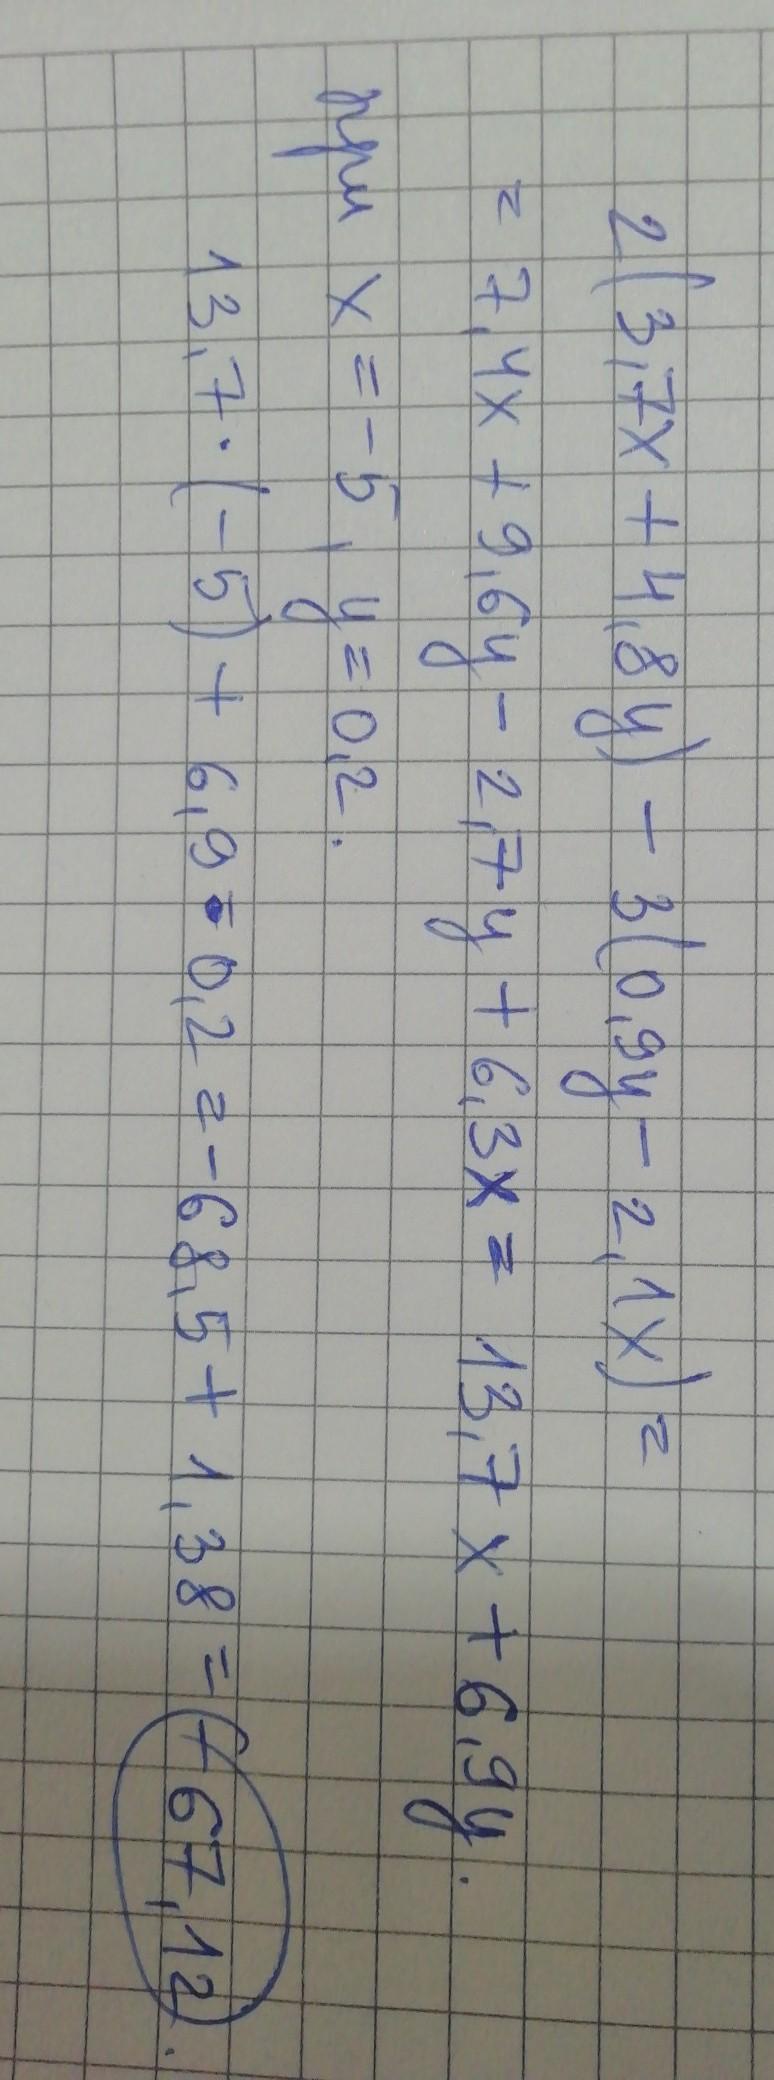 2(3,7x + 4,8y) - 3(0,9y - 2,1x) =
= 7,4x + 9,6y - 2,7y + 6,3x = 13,7x + 6,9y.
при x = -5, y = 0,2.
13,7 · (-5) + 6,9 · 0,2 = -68,5 + 1,38 = -67,12.